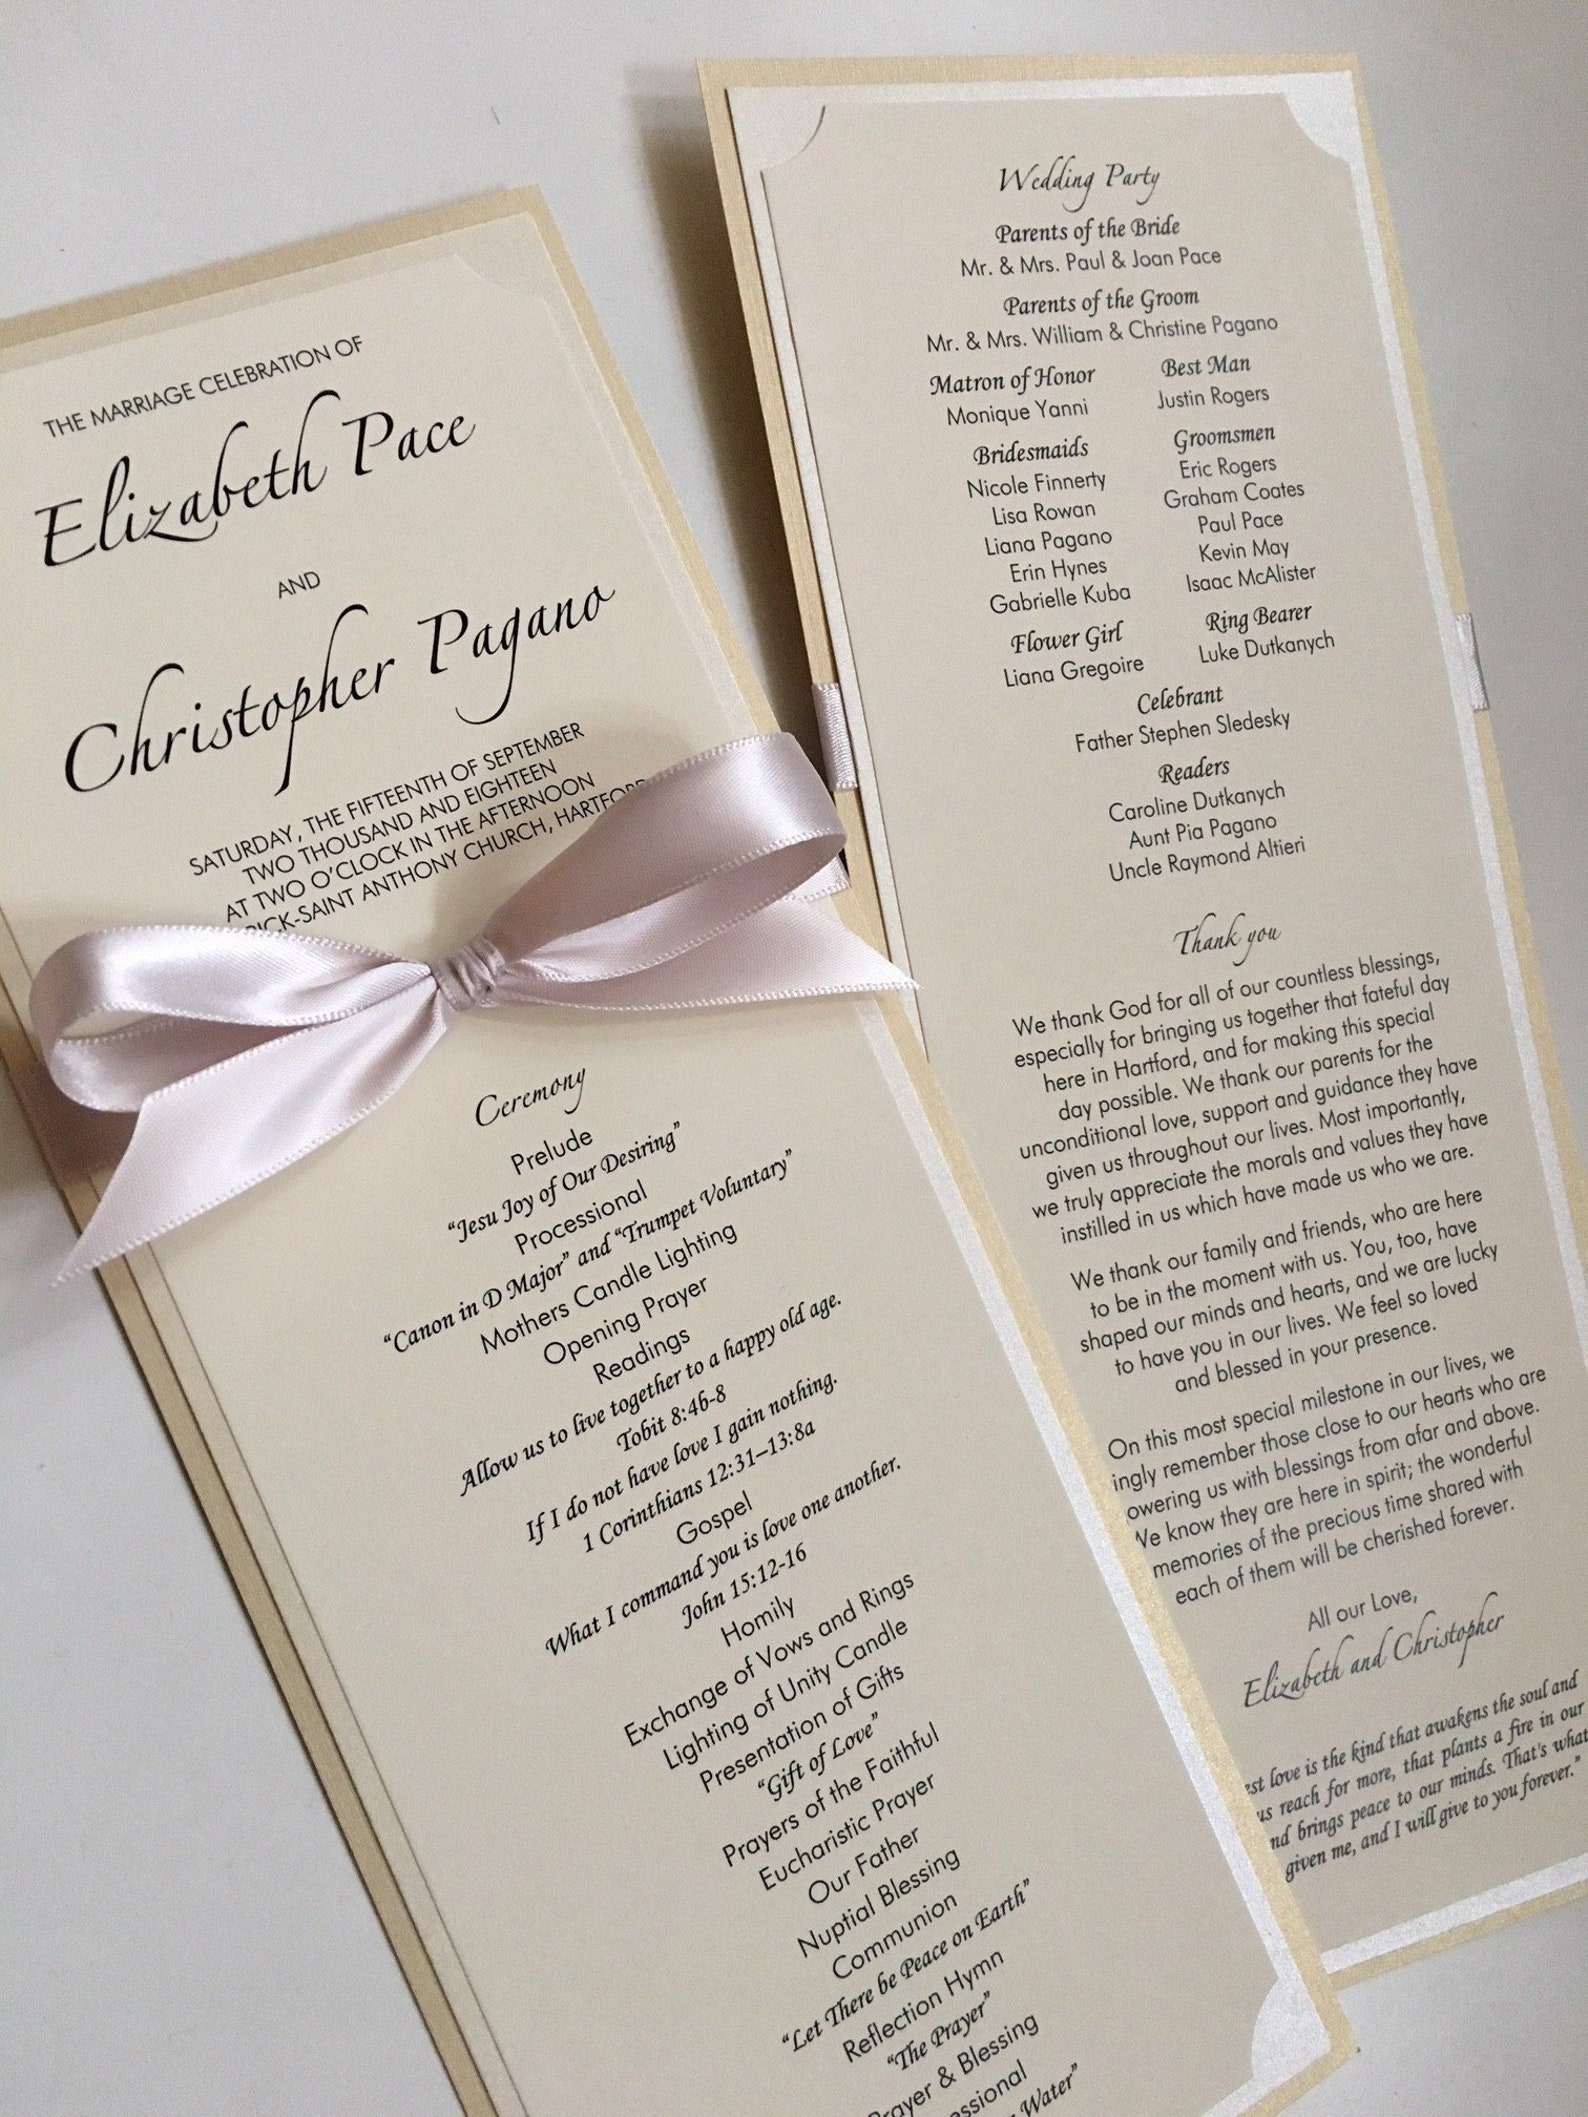 THE MARRIAGE CELEBRATION OF
Elizabeth Pace
AND
Christopher Pagano
SATURDAY, THE FIFTEENTH OF SEPTEMBER
TWO THOUSAND AND EIGHTEEN
AT TWO O'CLOCK IN THE AFTERNOON
ANTHONY CHURCH,
Ceremony
Prelude
“Jesu Joy of Our Desiring”
Processional
“Canon in D Major” and “Trumpet Voluntary”
Mothers Candle Lighting
Opening Prayer
Readings
Allow us to live together to a happy old age.
Tobit 8:4b-8
If I do not have love I gain nothing.
1 Corinthians 12:31–13:8a
Gospel
What I command you is love one another.
John 15:12-16
Homily
Exchange of Vows and Rings
Lighting of Unity Candle
Presentation of Gifts
“Gift of Love”
Prayers of the Faithful
Eucharistic Prayer
Our Father
Nuptial Blessing
Communion
“Let There be Peace on Earth”
Reflection Hymn
“The Prayer”
& Blessing
Water”
Wedding Party
Parents of the Bride
Mr. & Mrs. Paul & Joan Pace
Parents of the Groom
Mr. & Mrs. William & Christine Pagano
Matron of Honor
Monique Yanni
Bridesmaids
Nicole Finnerty
Lisa Rowan
Liana Pagano
Erin Hynes
Gabrielle Kuba
Flower Girl
Liana Gregoire
Best Man
Justin Rogers
Groomsmen
Eric Rogers
Graham Coates
Paul Pace
Kevin May
Isaac McAlister
Ring Bearer
Luke Dutkanych
Celebrant
Father Stephen Sledesky
Readers
Caroline Dutkanych
Aunt Pia Pagano
Uncle Raymond Altieri
Thank you
We thank God for all of our countless blessings,
especially for bringing us together that fateful day
here in Hartford, and for making this special
day possible. We thank our parents for the
unconditional love, support and guidance they have
given us throughout our lives. Most importantly,
we truly appreciate the morals and values they have
instilled in us which have made us who we are.
We thank our family and friends, who are here
to be in the moment with us. You, too, have
shaped our minds and hearts, and we are lucky
to have you in our lives. We feel so loved
and blessed in your presence.
On this most special milestone in our lives, we
remember those close to our hearts who are
us with blessings from afar and above.
We know they are here in spirit; the wonderful
memories of the precious time shared with
each of them will be cherished forever.
All our Love,
Elizabeth and Christopher
love is the kind that awakens the soul and
us reach for more, that plants a fire in our
brings peace to our minds. That's what
given me, and I will give to you forever.”